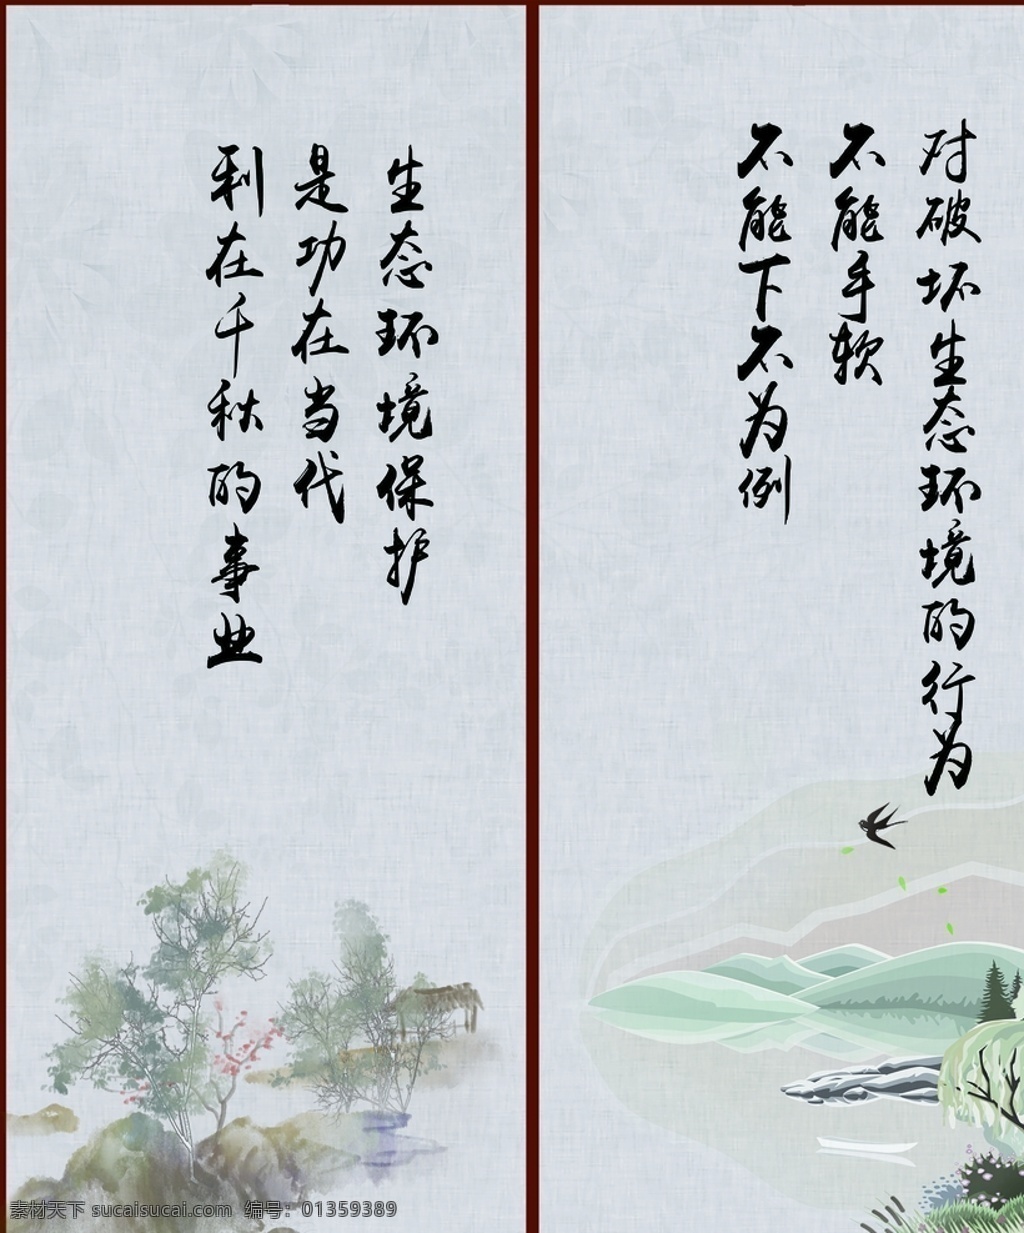 生态环境保护
是功在当代
利在千秋的事业
对破坏生态环境的行为
不能手软
不能下不为例
素材天下 sucaisucai.com 编号：01359389